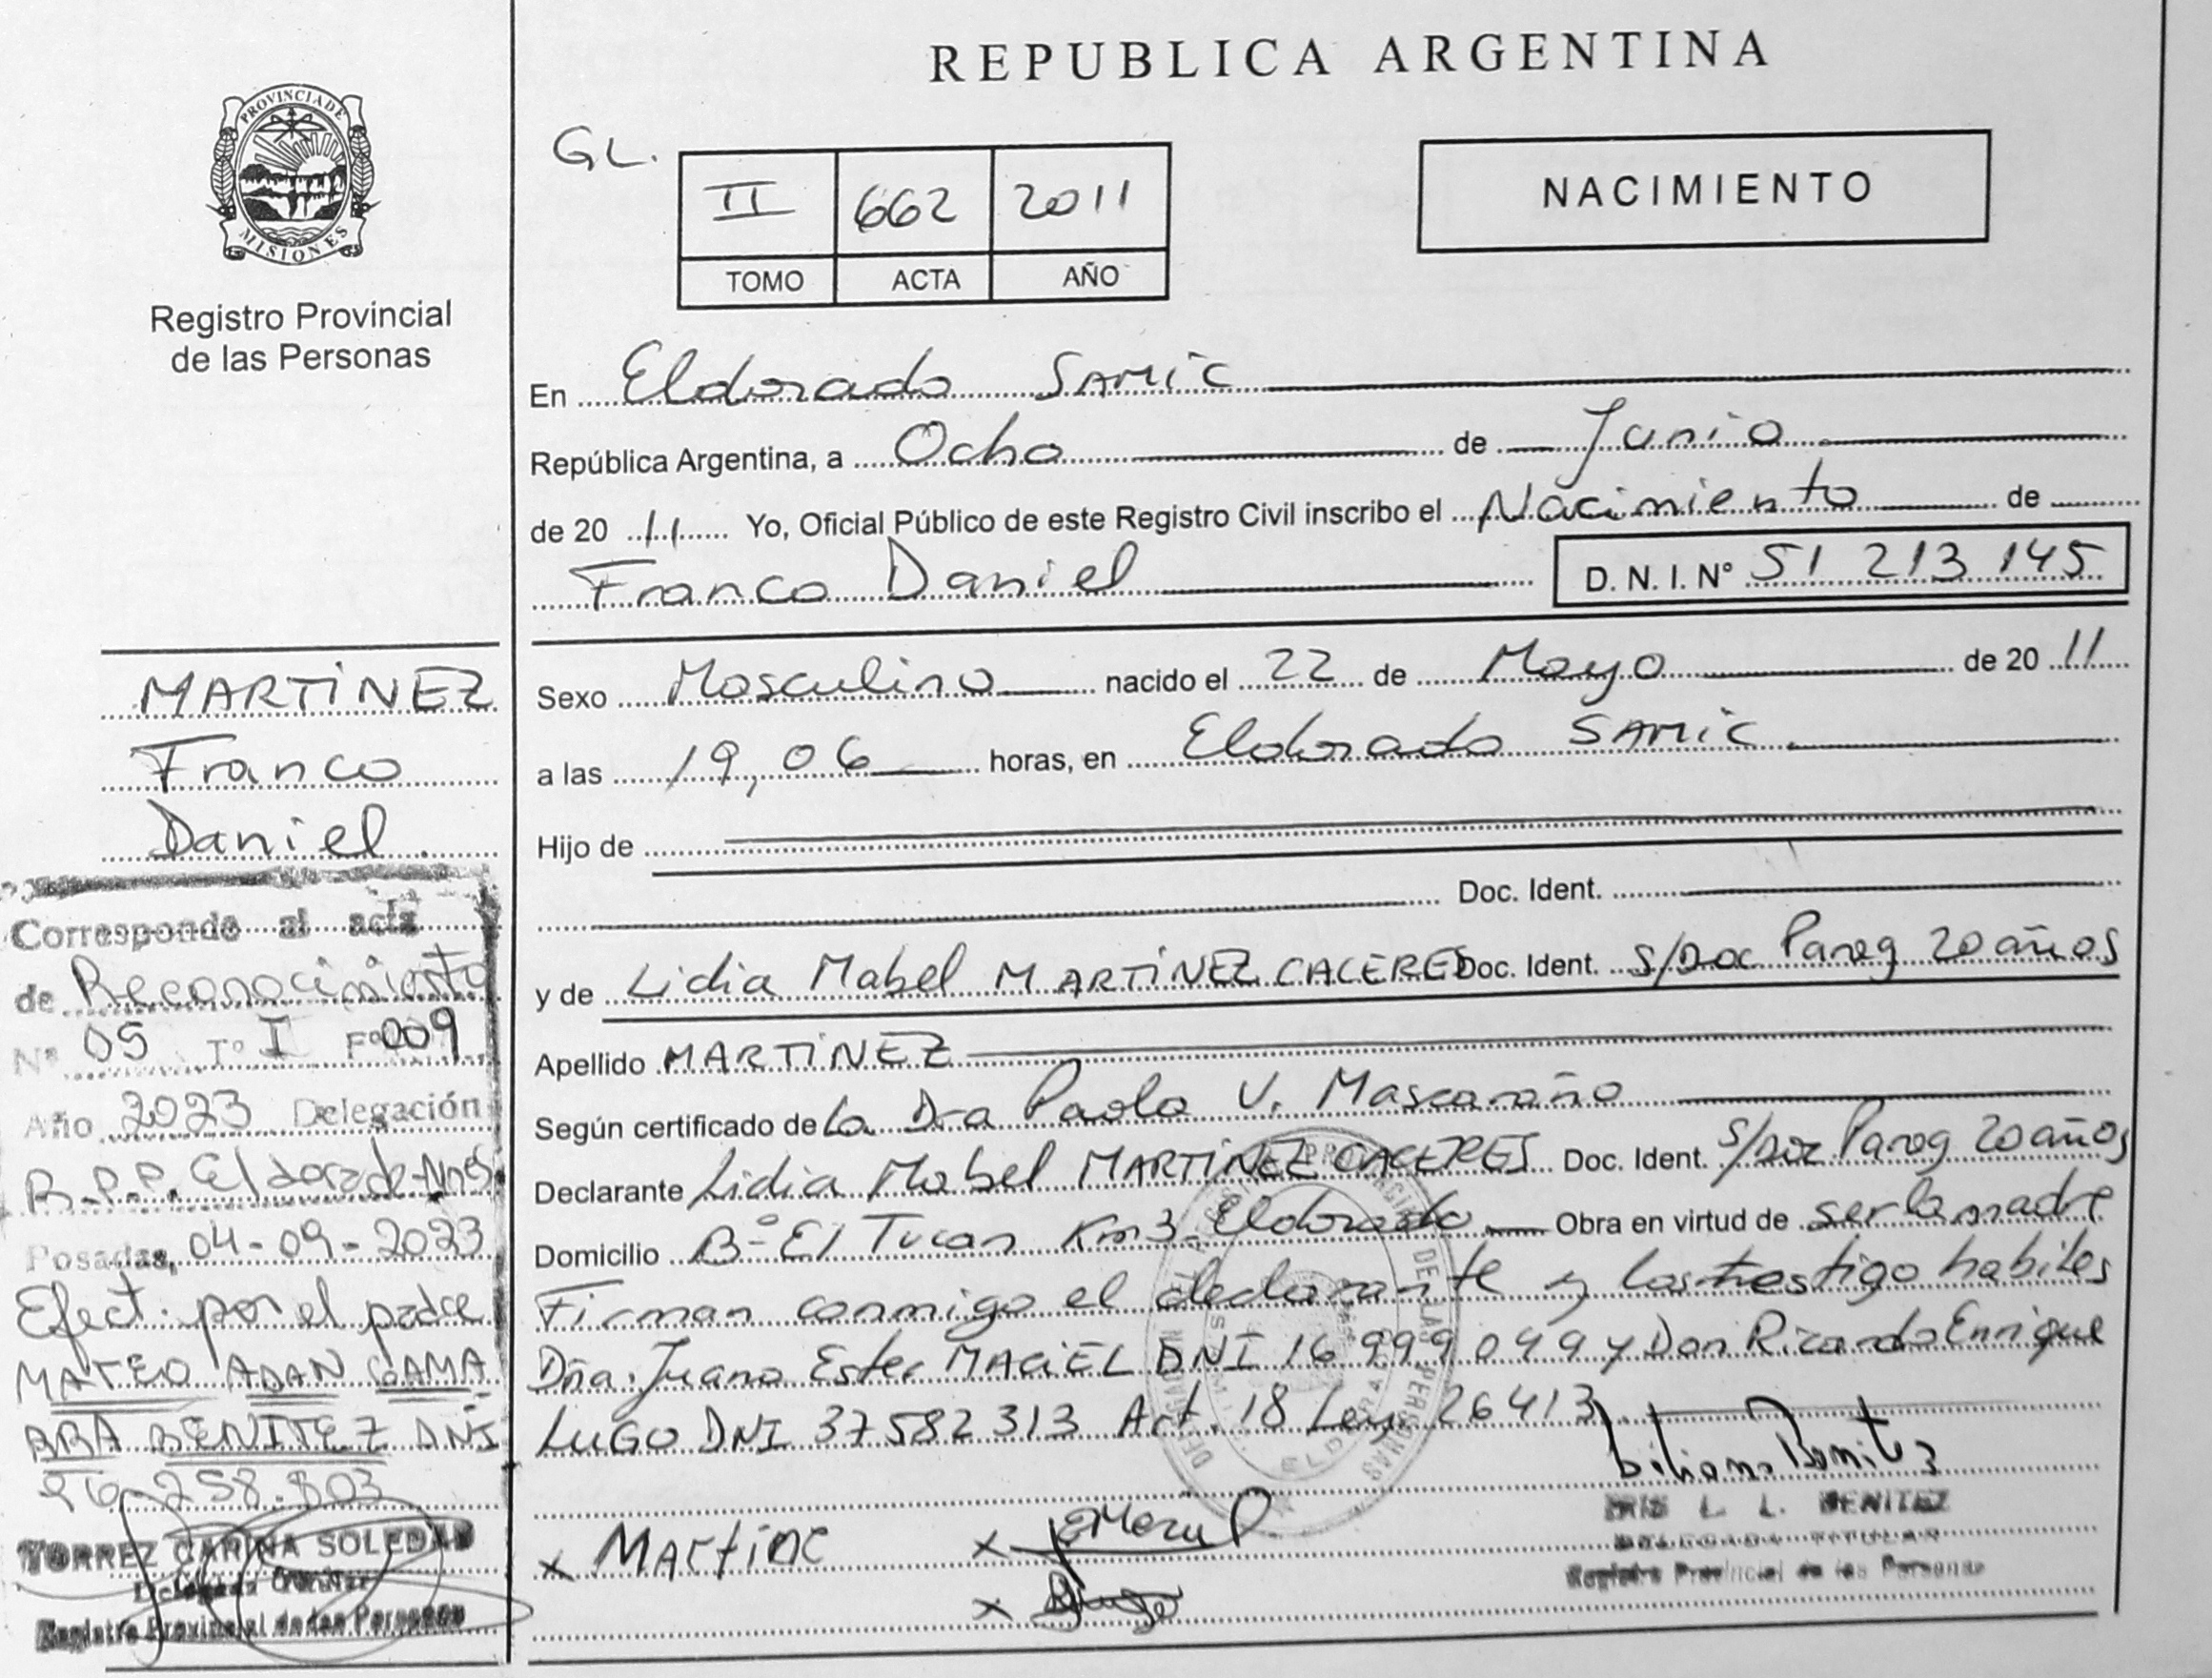 REPUBLICA ARGENTINA
PROVINCIA DE
MISIONES
Registro Provincial
de las Personas
GL.
II 662 2011
TOMO ACTA AÑO
NACIMIENTO
En Eldorado SAMIC
República Argentina, a Ocho de Junio
de 20 11 Yo, Oficial Público de este Registro Civil inscribo el Nacimiento de
Franco Daniel D. N. I. N° 51 213 145
Sexo Masculino nacido el 22 de Mayo de 20 11
a las 19,06 horas, en Eldorado SAMIC.
Hijo de
Doc. Ident.
y de Lidia Mabel MARTÍNEZ CACERES Doc. Ident. S/Doc Parag 20 años
Apellido MARTÍNEZ
Según certificado de la Dra Paola V. Mascaraño
Declarante Lidia Mabel MARTÍNEZ CACERES Doc. Ident. S/Doc Parag 20 años
Domicilio B° El Tucan Km3 Eldorado Obra en virtud de ser la madre
Firman conmigo el declarante y los testigo habiles
Dña. Juana Ester MACIEL DNI 16 999 049 y Don Ricardo Enrique
LUGO DNI 37582313 Art. 18 Ley 26413
x Martine x
x
L. L. BENITEZ
DELEGADA TITULAR
Registro Provincial de las Personas
MARTÍNEZ
Franco
Daniel.
Corresponde al acta
de Reconocimiento
N° 05 T° I F° 009
Año 2023 Delegación
R.P.P. Eldorado-Mnes.
Posadas, 04-09-2023
Efect. por el padre
MATEO ADAN GAMA
RRA BENITEZ DNI
258.803
TORREZ CARINA SOLEDAD
Delegada Titular
Registro Provincial de las Personas